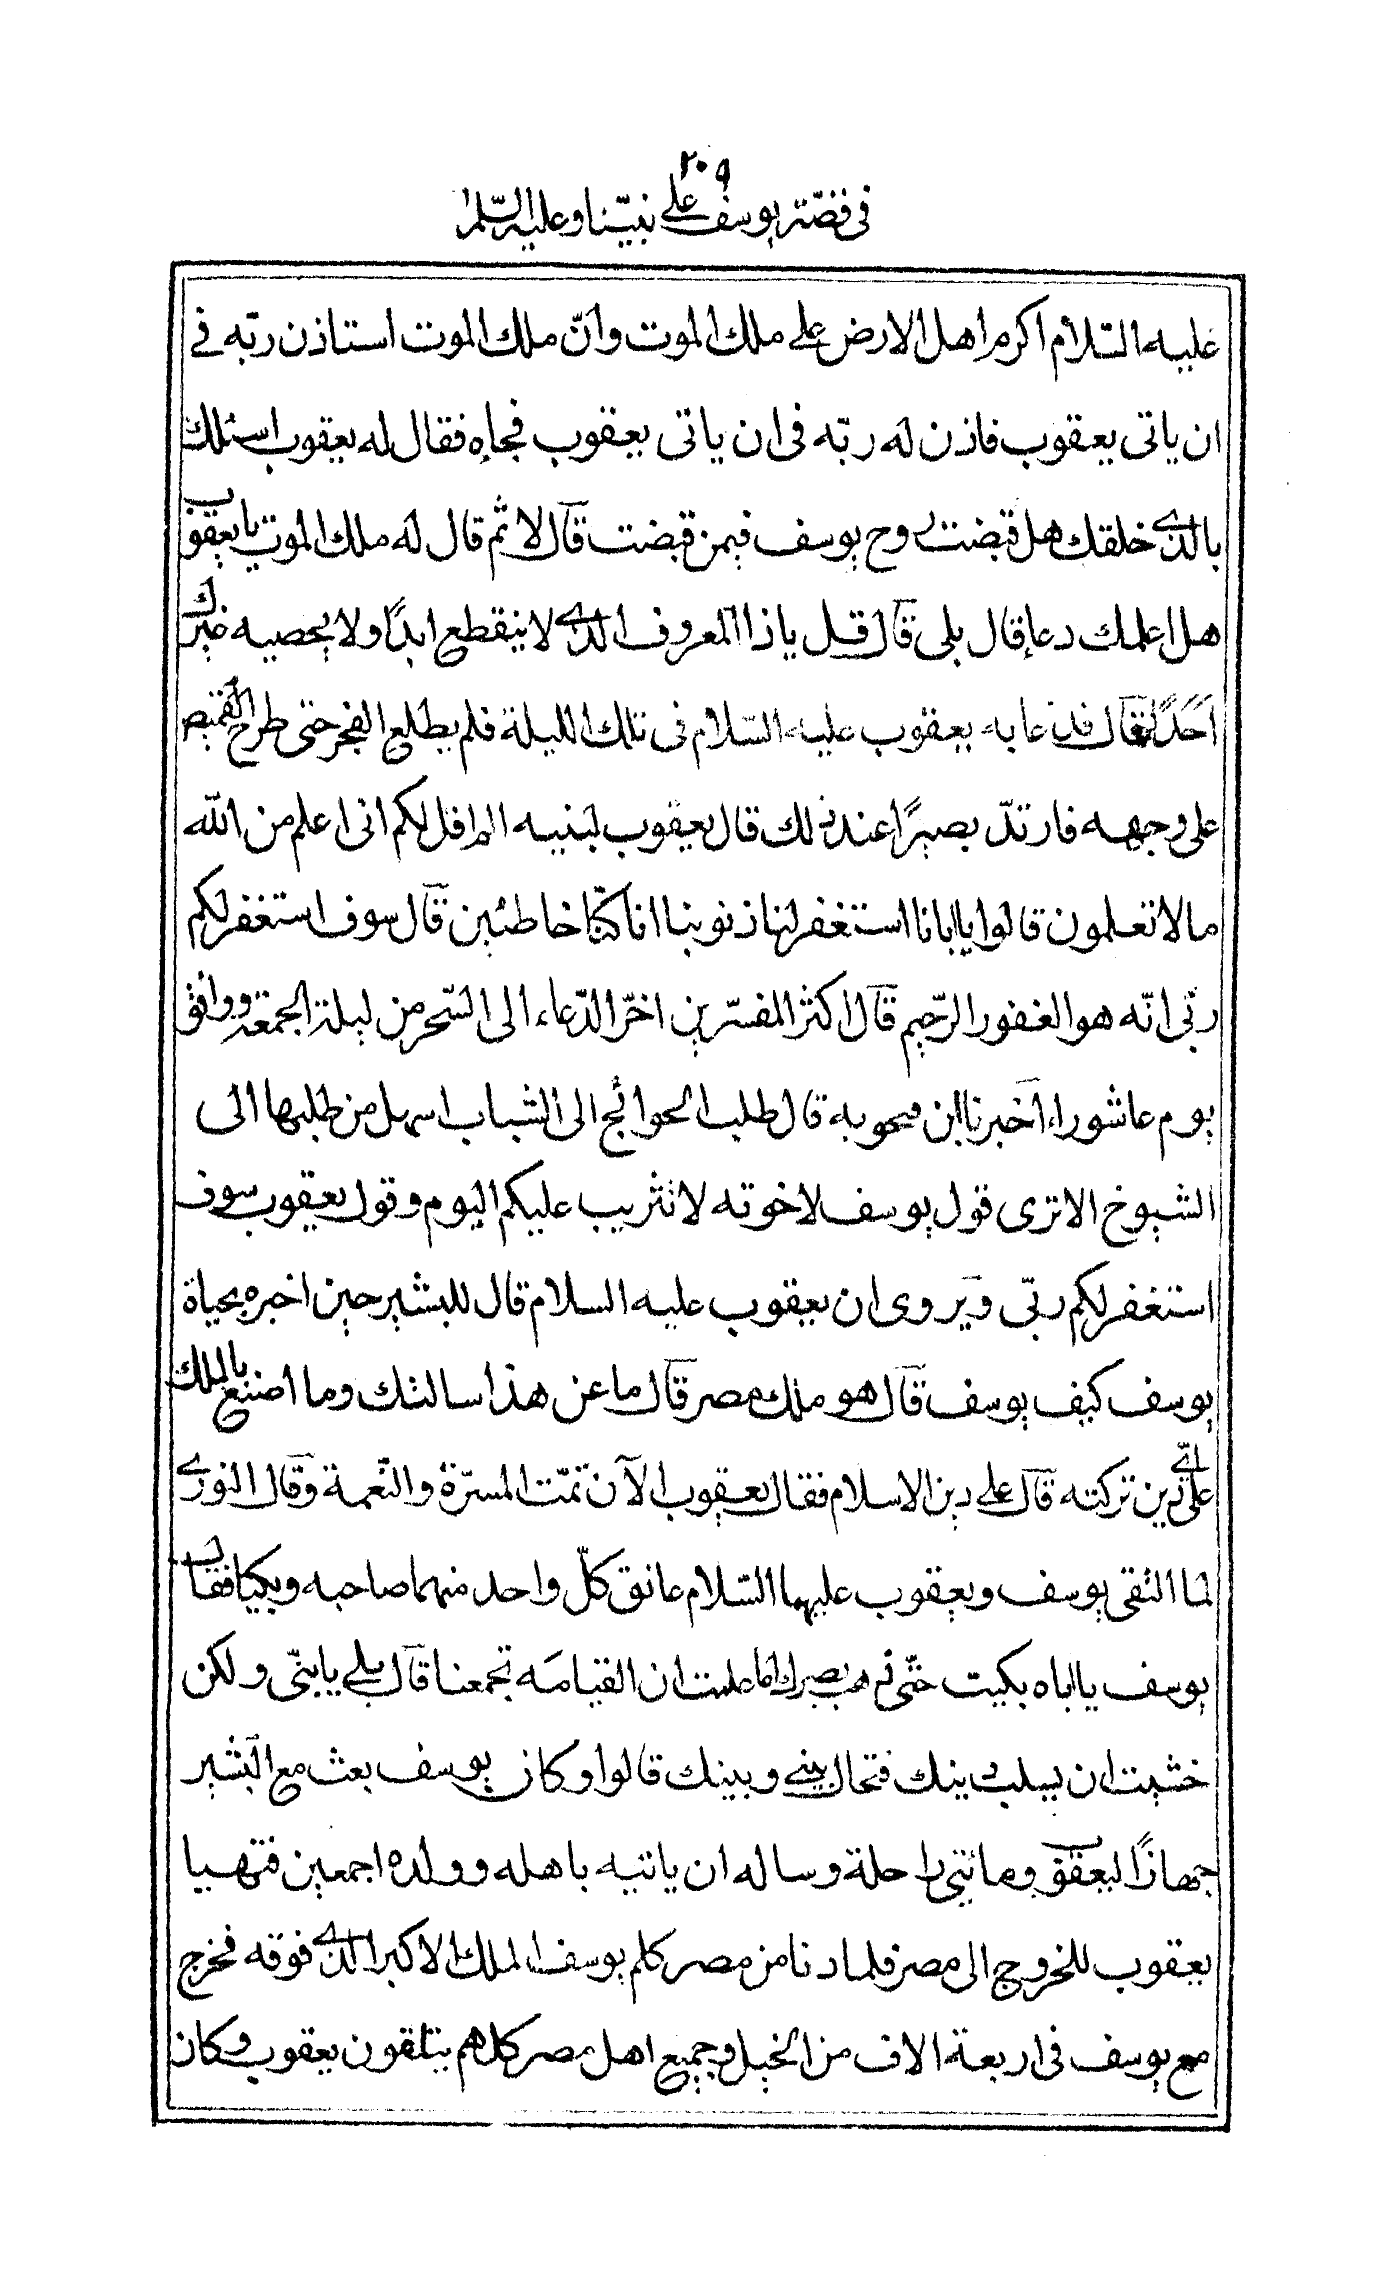 ٢٠٩
في قصّة يوسف على نبيّنا وعليه السّلام
عليه السّلام اكرم اهل الارض على ملك الموت وانّ ملك الموت استاذن ربّه في
ان ياتى يعقوب فاذن له ربّه فى ان ياتى يعقوب فجاءه فقال له يعقوب اسئلك
بالذى خلقك هل قبضت روح يوسف فيمن قبضت قال لا ثم قال له ملك الموت يا يعقوب
هل اعلمك دعاء قال بلى قال قل يا ذا المعروف الذى لا ينقطع ابدًا ولا يحصيه غيرك
احدًا قال فدعا به يعقوب عليه السّلام فى تلك الليلة فلم يطلع الفجر حتى طرح القميص
على وجهه فارتدّ بصيرًا عند ذلك قال يعقوب لبنيه الم اقل لكم انى اعلم من الله
ما لا تعلمون قالوا يا ابانا استغفر لنا ذنوبنا انا كنّا خاطئين قال سوف استغفر لكم
ربّى انّه هو الغفور الرّحيم قال اكثر المفسّرين اخّر الدّعاء الى السّحر من ليلة الجمعة ووافق
يوم عاشوراء اخبرنا ابن محمويه قال طلب الحوائج الى الشباب اسهل من طلبها الى
الشيوخ الا ترى قول يوسف لاخوته لا تثريب عليكم اليوم وقول يعقوب سوف
استغفر لكم ربّى ويروى ان يعقوب عليه السلام قال للبشير حين اخبره بحياة
يوسف كيف يوسف قال هو ملك مصر قال ما عن هذا سالتك وما اصنع بالملك
على اىّ دين تركته قال على دين الاسلام فقال يعقوب الآن تمّت المسرّة والنّعمة وقال الثورى
لما التقى يوسف ويعقوب عليهما السّلام عانق كلّ واحد منهما صاحبه وبكيا فقال
يوسف يا اباه بكيت حتّى ذهب بصرك اما علمت ان القيامه تجمعنا قال بلى يا بنىّ ولكن
خشيت ان يسلب دينك فتحال بينى وبينك قالوا وكان يوسف بعث مع البشير
جهازًا ليعقوب ومائتى راحلة وساله ان ياتيه باهله وولده اجمعين فتهيا
يعقوب للخروج الى مصر فلما دنا من مصر كلم يوسف الملك الاكبر الذى فوقه فخرج
مع يوسف فى اربعة الاف من الخيل وجميع اهل مصر كلهم يتلقون يعقوب وكان